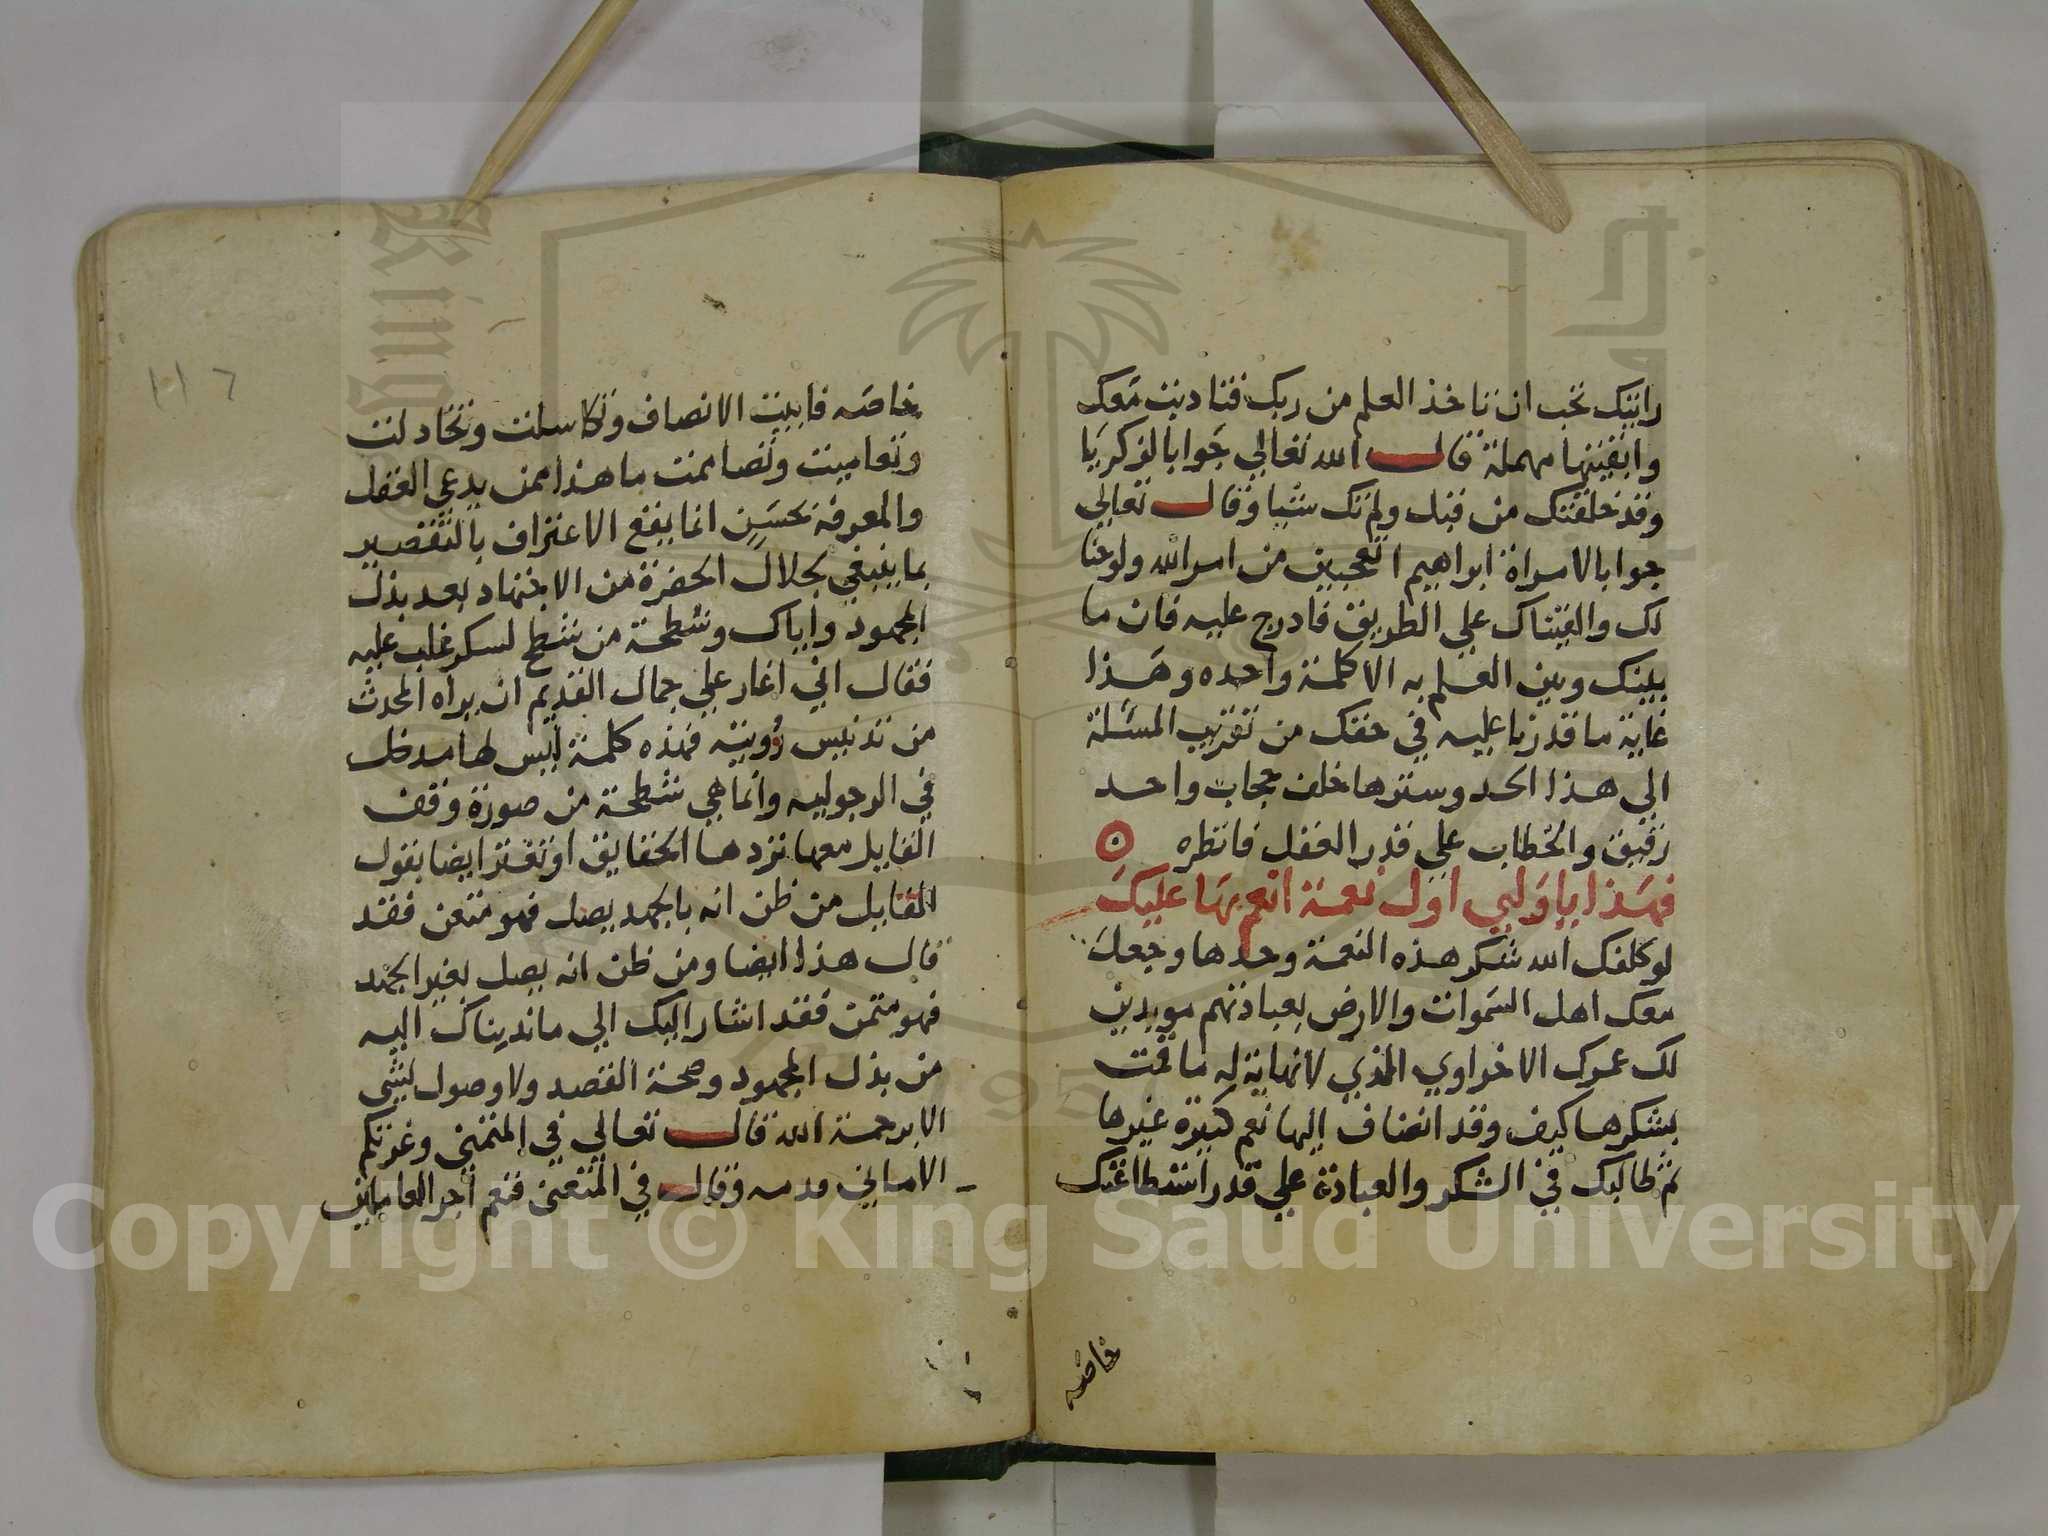 رايتك تحب ان تاخذ العلم من ربك فتاديت معك
وابقيتها مهملة قال الله تعالي جوابا لزكريا
وقد خلقتك من قبل ولم تك شيا وقال تعالي
جوابا لامراة ابراهيم اتعجبين من امر الله ولوحنا
لك والقيناك علي الطريق فادرج عليه فان ما
بينك وبين العلم به الا كلمة واحده وهذا
غاية ما قدرنا عليه في حقك من تقريب المسئلة
الي هذا الحد وسترها خلف حجاب واحد
رقيق والخطاب علي قدر العقل فانظره
فهذا ياولي اول نعمة انعم بها عليك
لو كلفك الله شكر هذه النعمة وحدها وجعل
معك اهل السموات والارض بعبادتهم مويدين
لك عمرك الاخراوي الذي لا نهاية له ما قمت
بشكرها كيف وقد انضاف اليها نعم كثيرة غيرها
ثم طالبك في الشكر والعبادة علي قدر استطاعتك
خاصه
١١٦
خاصه فابيت الانصاف وتكاسلت وتخادلت
وتعاميت وتصاممت ما هذا ممن يدعي العقل
والمعرفة بحسن انما يقع الاعتراف بالتقصير
بما ينبغي بجلال الحضرة من الاجتهاد بعد بذل
المجهود واياك وشطحة من شطح لسكر غلب عليه
فقال اني اغار علي جمال القديم ان يراه المحدث
من تدنيس رويته فهذه كلمة ليس لها مدخل
في الرجوليه وانما هي شطحة من صورة وقف
القايل معها تردها الحقايق او تفتر ايضا بقول
القايل من ظن انه بالجهد يصل فهو متعن فقد
قال هذا ايضا ومن ظن انه يصل بغير الجهد
فهو متمن فقد اشار اليك الي ما نديناك اليه
من بذل المجهود وصحة القصد ولا وصول لشي
الا برحمة الله قال تعالي في المتمني وغرتكم
الاماني مدمه وقال في المتعنى فنعم اجر العاملين
Copyright © King Saud University
1957